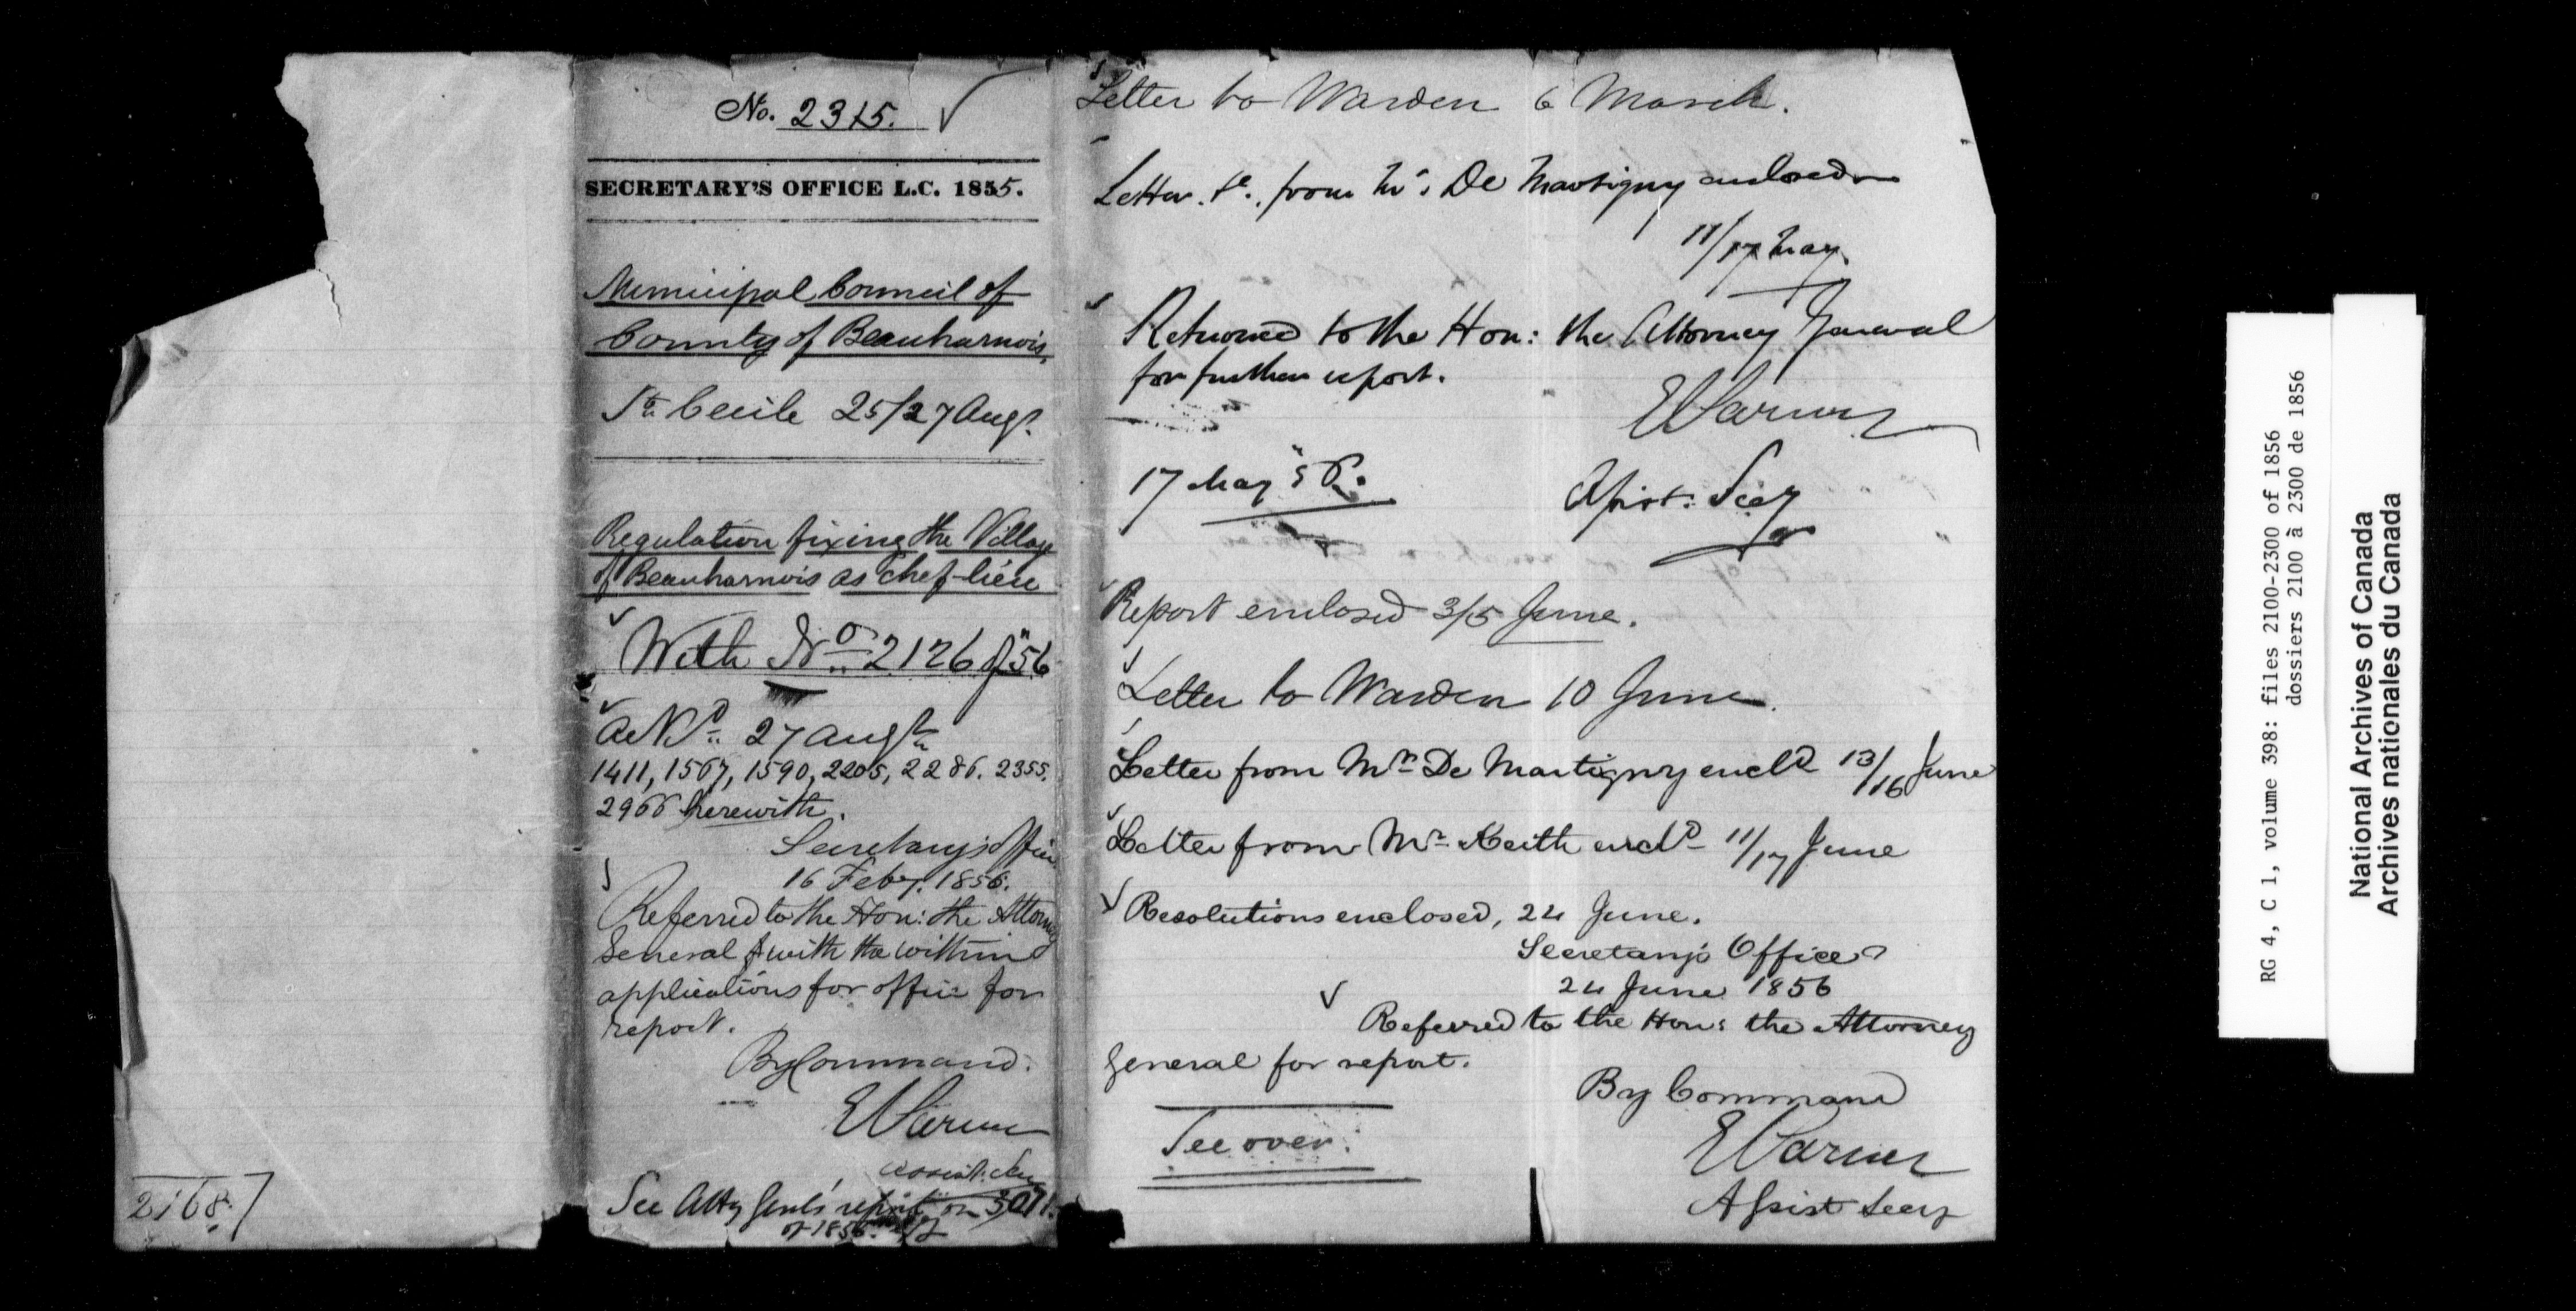 No. 2315.
SECRETARY'S OFFICE L.C. 1855.
Municipal Council of
County of Beauharnois,
Ste. Cecile 25/27 Augt.
Regulation fixing the Village
of Beauharnois as chef-lieu
With No. 2126 of 56
27 Augt.
1411, 1567, 1590, 2205, 2286. 2355.
2966 herewith.
Secretary's Office
16 Feby. 1856.
Referred to the Hon: the Attorney
General with the within
applications for office for
report.
By Command.
E Parent
Assist: Secy
See Atty Genl's report on 3071.
of 1856.
2168
Letter to Warden 6 March.
Letter &c. from Mr. De Martigny enclosed
11/17 May.
Returned to the Hon: the Attorney General
for further report.
E Parent
17 May 56.
Assist: Secy
Report enclosed 3/5 June.
Letter to Warden 10 June.
Letter from Mr De Martigny encld 13/16 June
Letter from Mr Keith encld 11/17 June
Resolutions enclosed, 24 June.
Secretary's Office
24 June 1856
Referred to the Hon: the Attorney
General for report.
By Command
E Parent
Assist Secy
See over.
RG 4, C 1, volume 398: files 2100-2300 of 1856
dossiers 2100 à 2300 de 1856
National Archives of Canada
Archives nationales du Canada